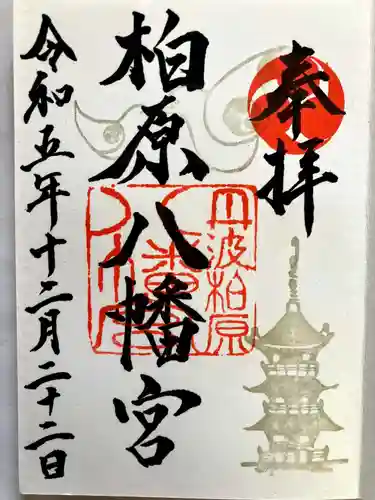 奉拝
柏原八幡宮
丹波柏原
八幡宮
令和五年十二月二十二日